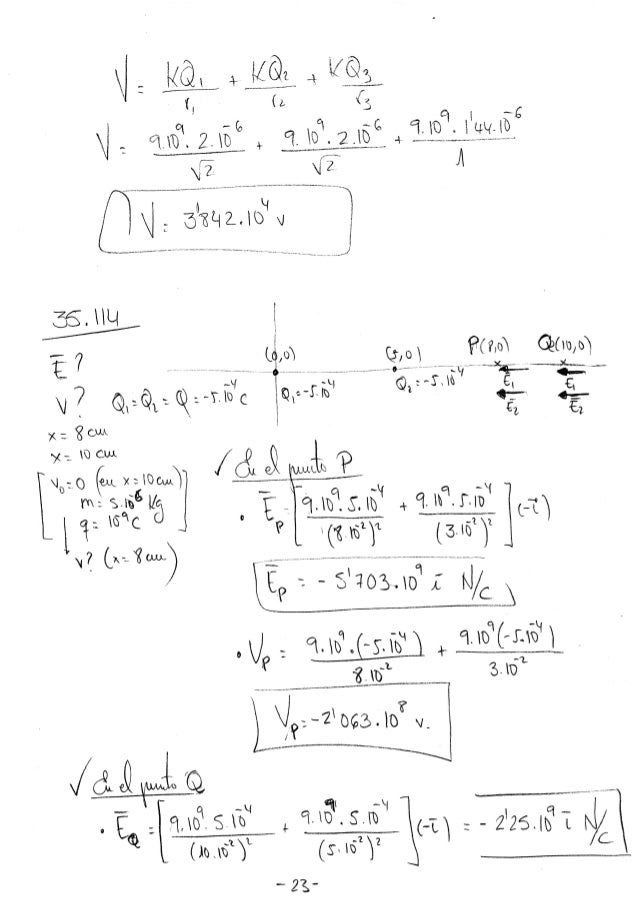 V = KQ₁/r₁ + KQ₂/r₂ + KQ₃/r₃
V = 9·10⁹·2·10⁻⁶/√2 + 9·10⁹·2·10⁻⁶/√2 + 9·10⁹·1'44·10⁻⁶/1
V = 3'842·10⁴ v
35.114
(0,0) (5,0) P(8,0) Q(10,0)
Ē?
Q₁=-5·10⁻⁴ Q₂=-5·10⁻⁴ Ē₁ E₁
Ē₂ Ē₂
V? Q₁=Q₂=Q=-5·10⁻⁴ C
x = 8 cm
x = 10 cm
[v₀=0 (en x=10cm)
m= 5·10⁻⁶ Kg
q= 10⁻⁹ C]
v? (x=8cm)
✓ En el punto P
• Ē_P = [9·10⁹·5·10⁻⁴/(8·10⁻²)² + 9·10⁹·5·10⁻⁴/(3·10⁻²)²](-ī)
Ē_P = - 5'703·10⁹ ī N/C
• V_P = 9·10⁹·(-5·10⁻⁴)/8·10⁻² + 9·10⁹(-5·10⁻⁴)/3·10⁻²
V_P = -2'063·10⁸ v.
✓ En el punto Q
• Ē_Q = [9·10⁹·5·10⁻⁴/(10·10⁻²)² + 9·10⁹·5·10⁻⁴/(5·10⁻²)²](-ī) = - 2'25·10⁹ ī N/C
- 23 -